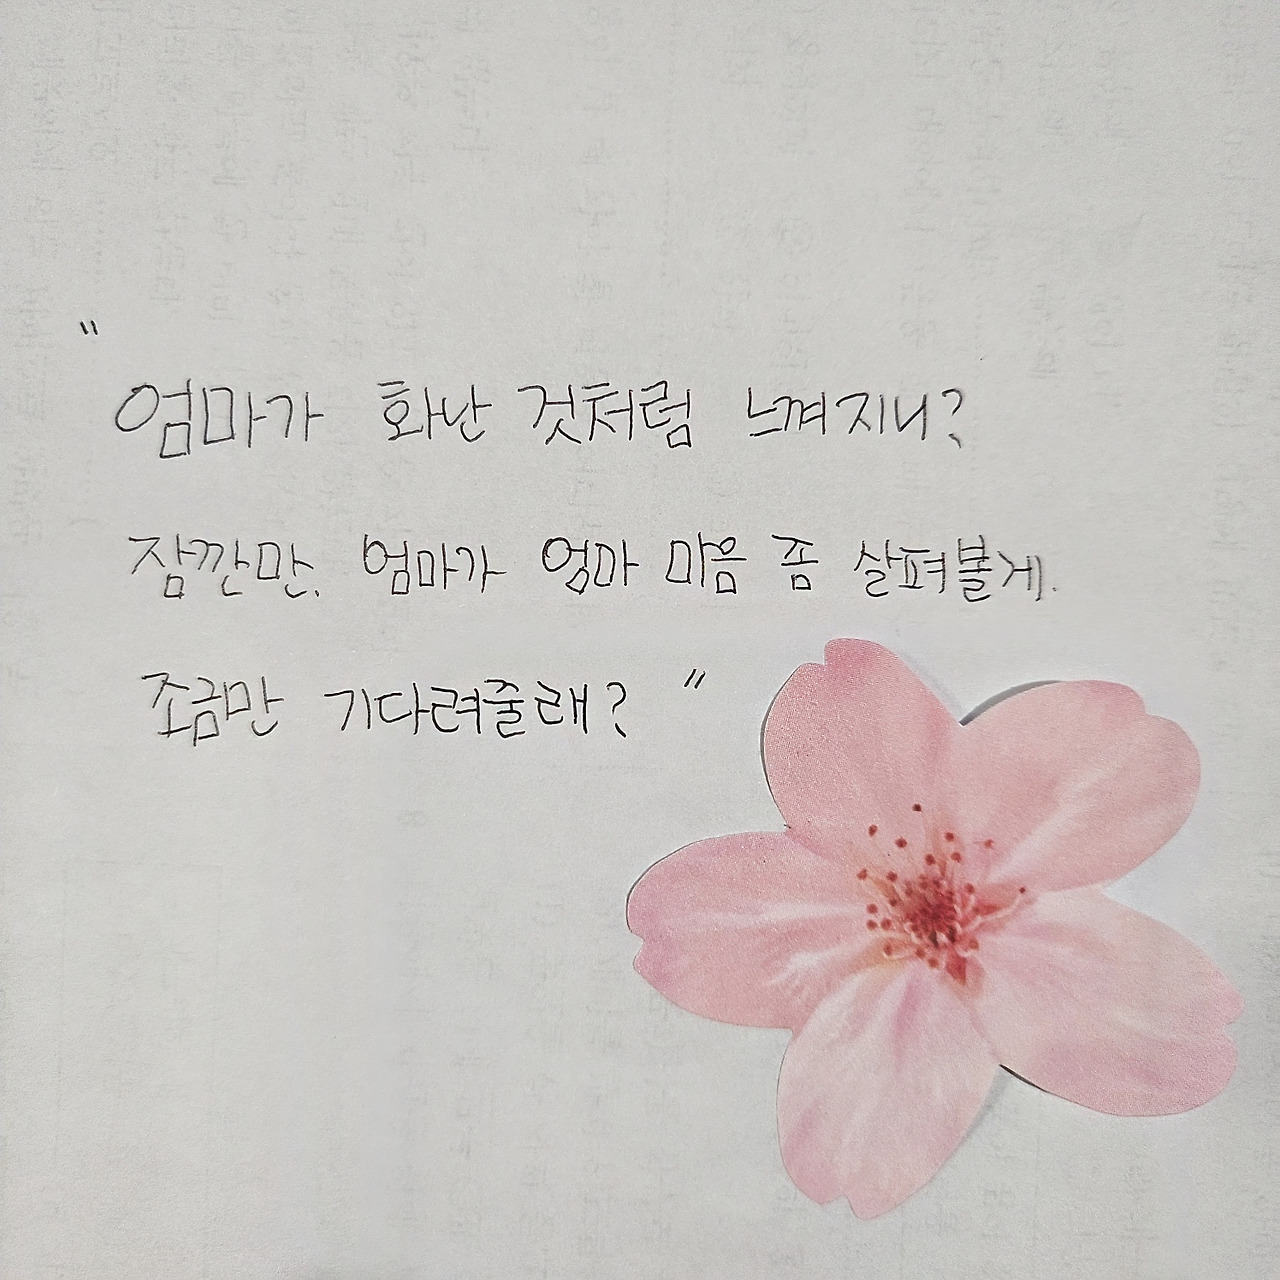 "
엄마가 화난 것처럼 느껴지니?
잠깐만. 엄마가 엄마 마음 좀 살펴볼게.
조금만 기다려줄래? "